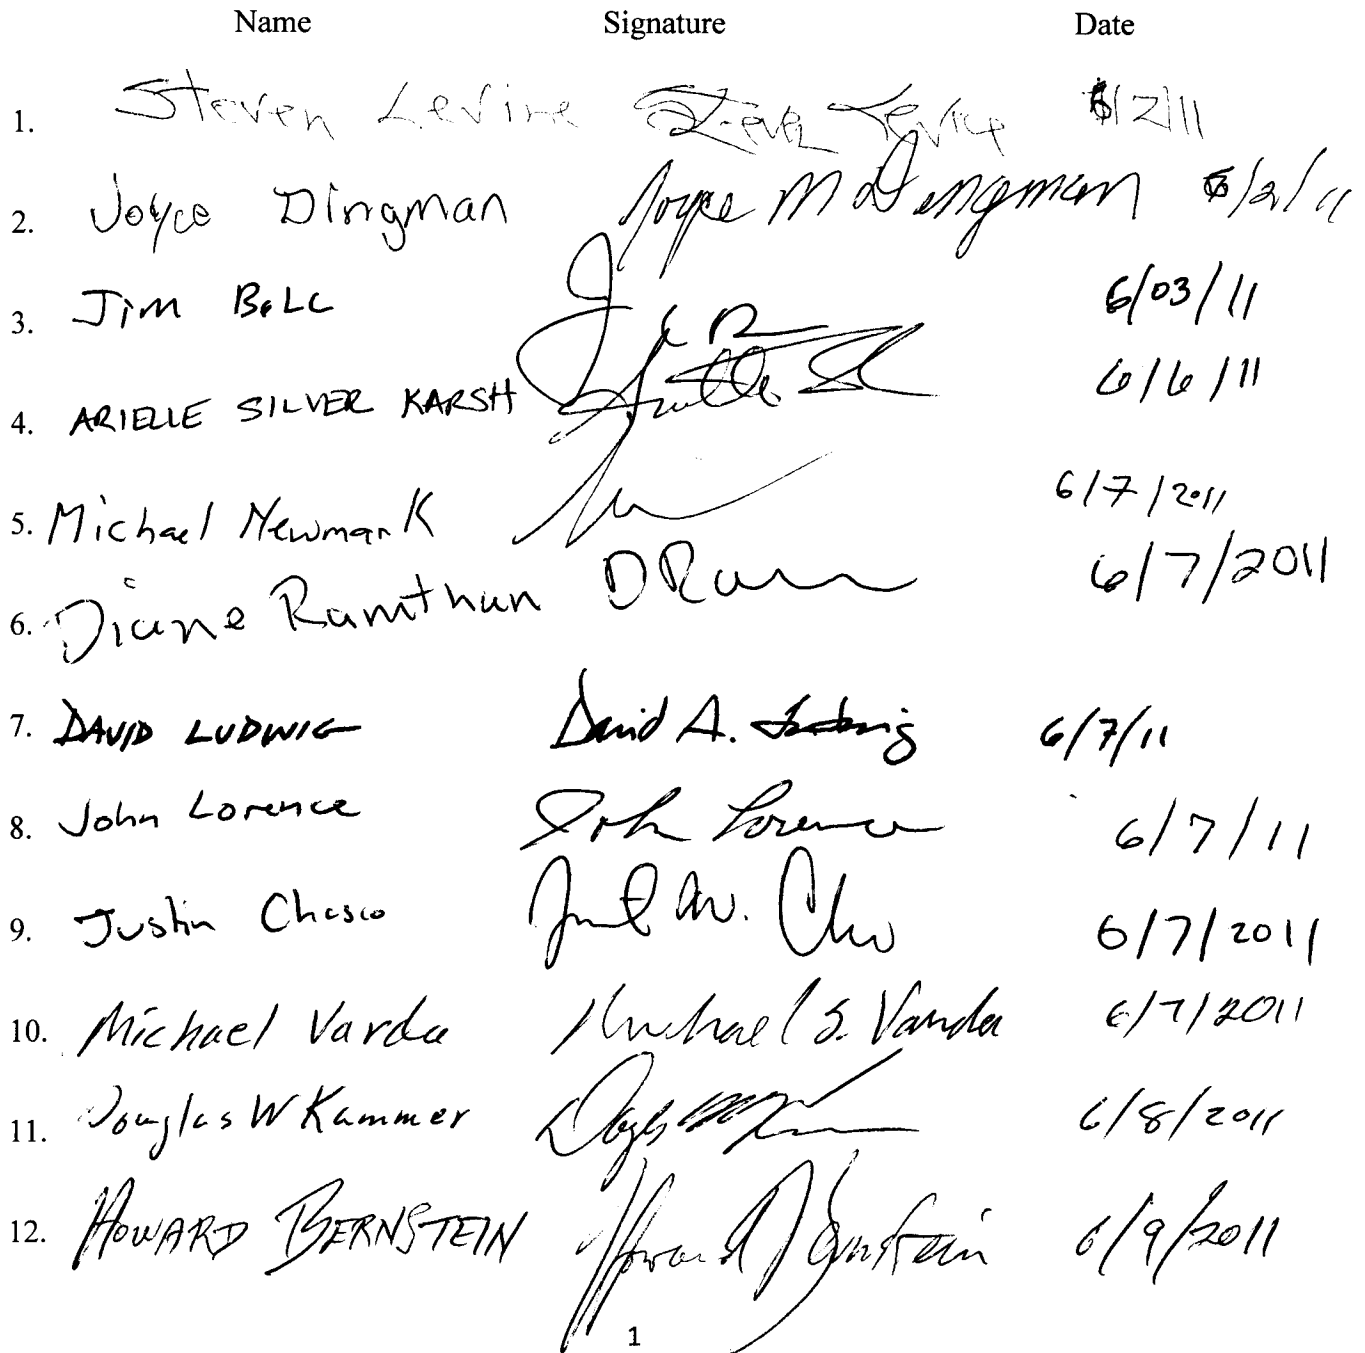 Name Signature Date
1. Steven Levine Steven Levine 6/2/11
2. Joyce Dingman Joyce M Dingman 6/2/11
3. Jim Bell 6/03/11
4. ARIELLE SILVER KARSH 6/6/11
5. Michael Newmark 6/7/2011
6. Diane Ramthun 6/7/2011
7. DAVID LUDWIG David A. Ludwig 6/7/11
8. John Lorence John Lorence 6/7/11
9. Justin Chasco 6/7/2011
10. Michael Varda Michael S. Varda 6/7/2011
11. Douglas W Kammer 6/8/2011
12. HOWARD BERNSTEIN Howard Bernstein 6/9/2011
1